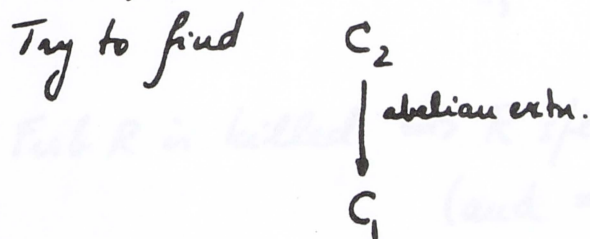 Try to find C₂
abelian extn.
C₁